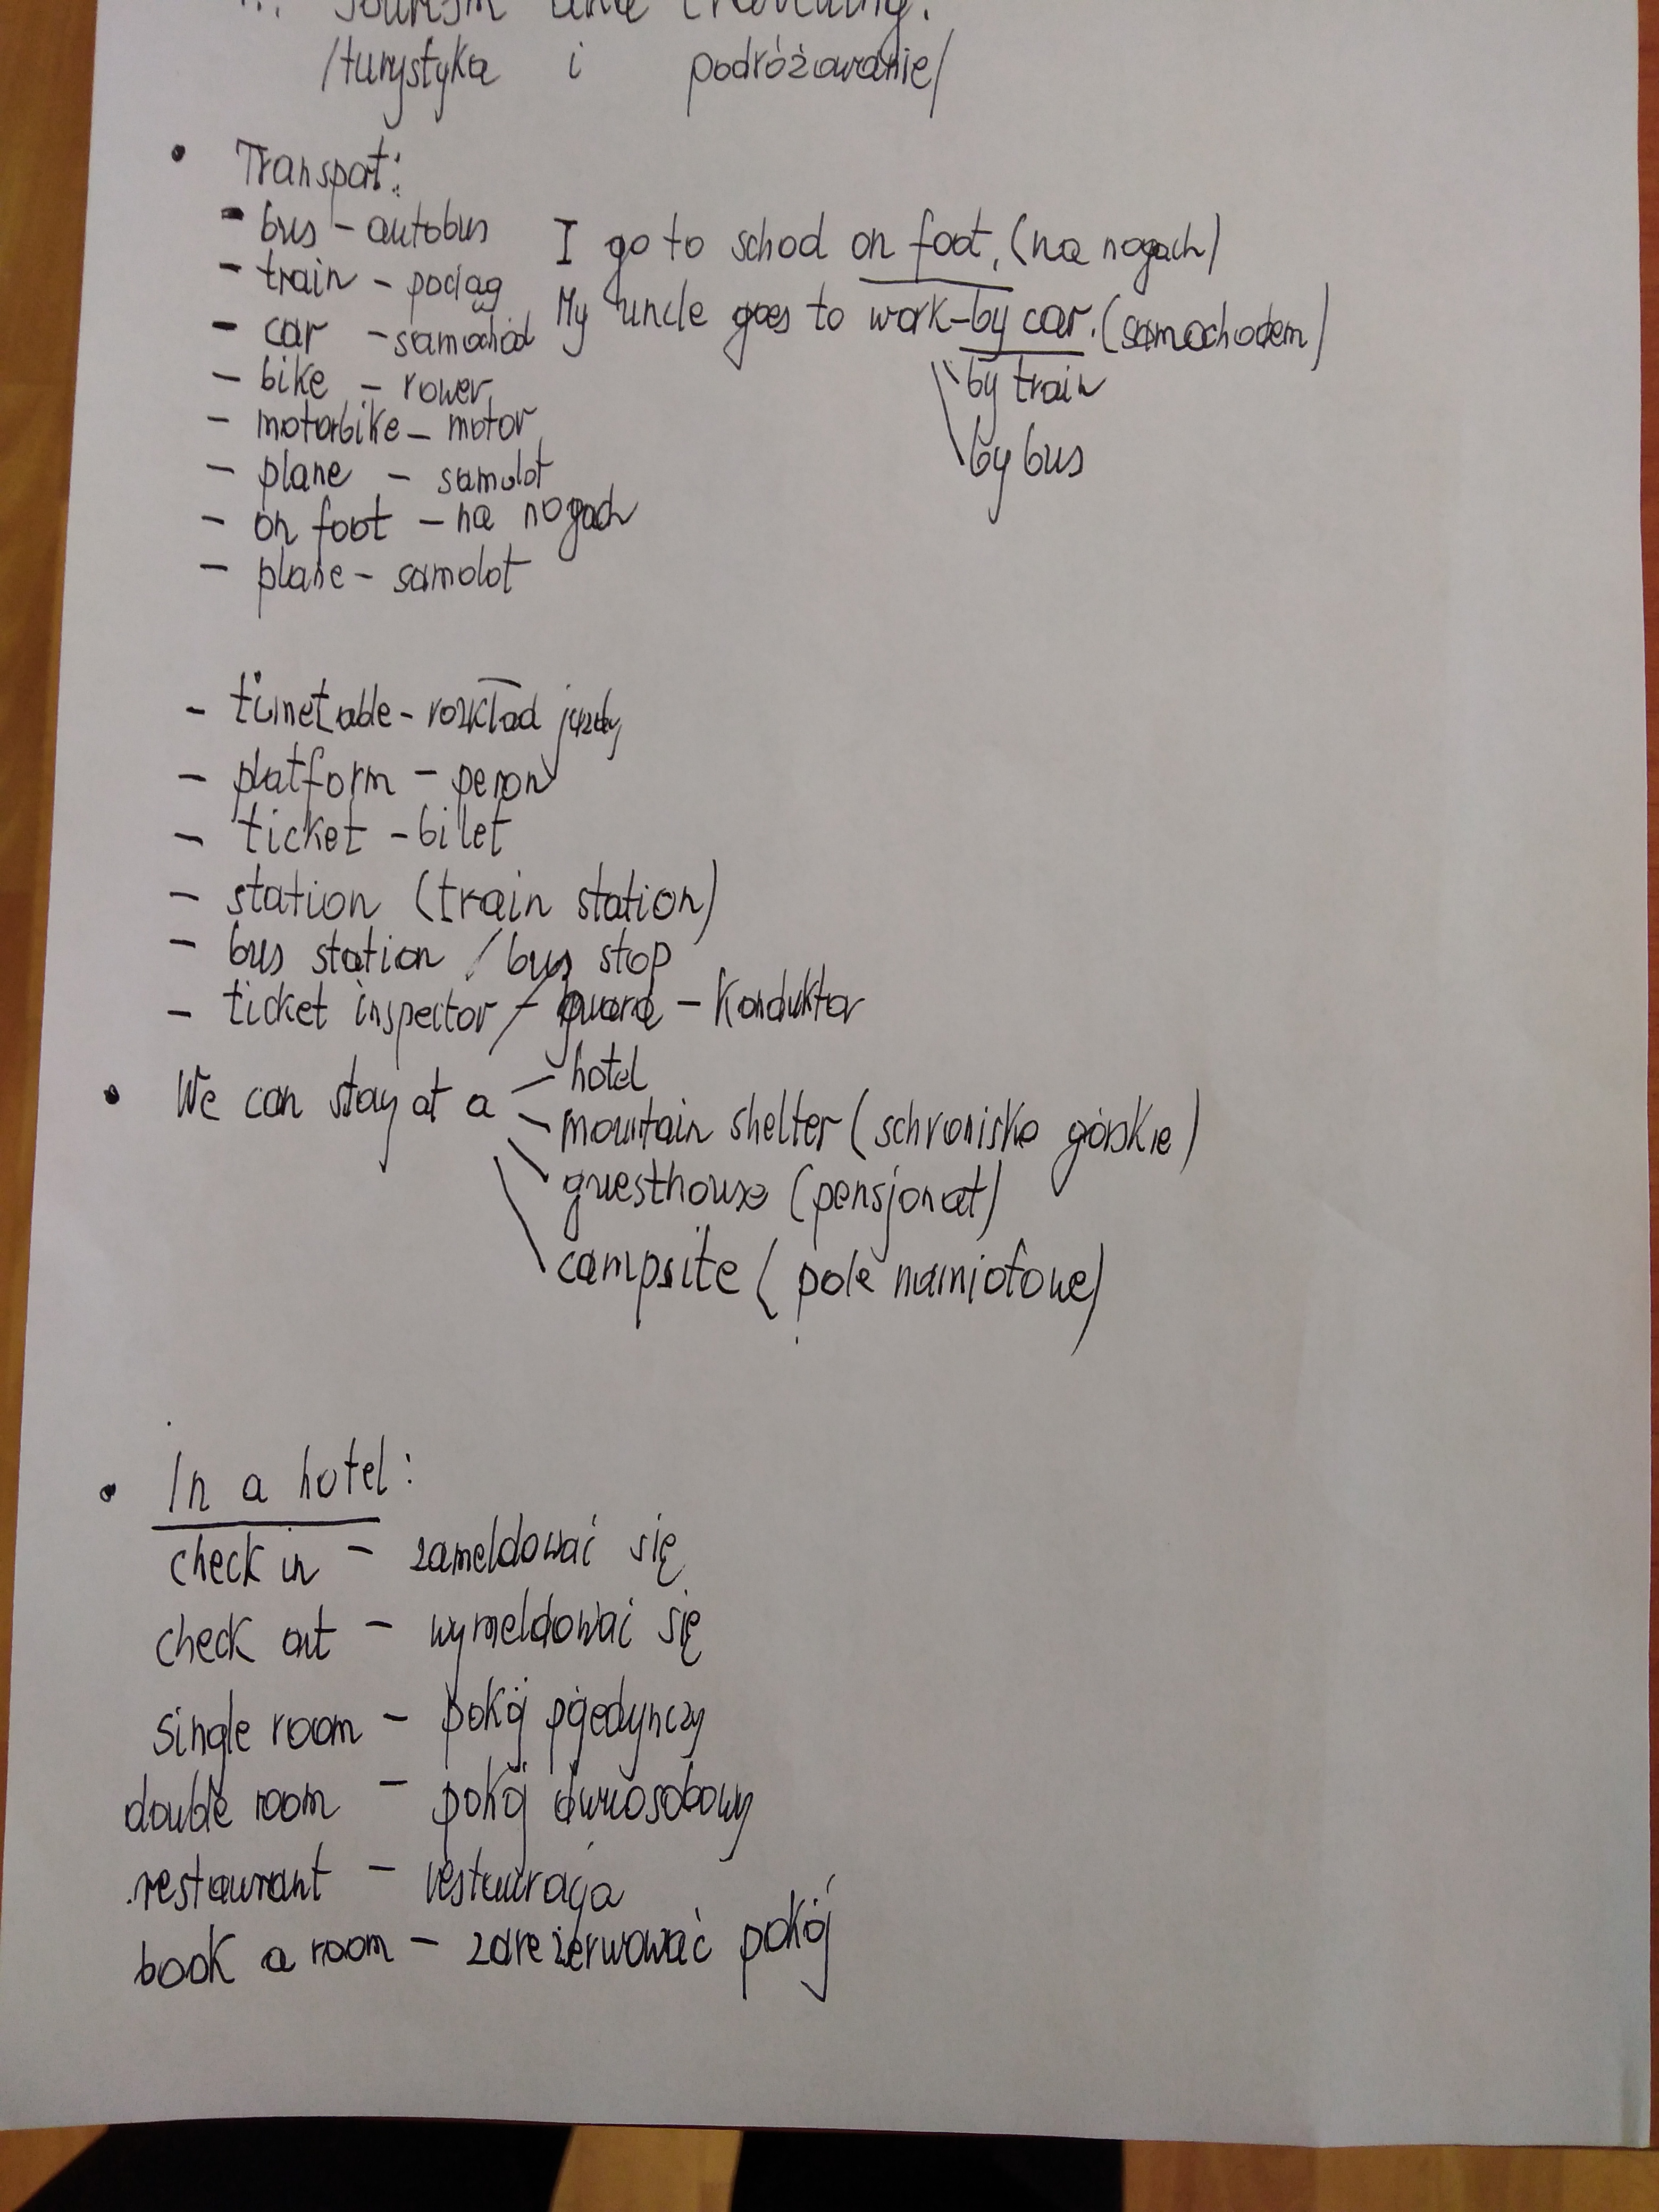 Tourism and travelling.
/turystyka i podróżowanie/
• Transport:
- bus - autobus
I go to school on foot. (na nogach)
- train - pociąg
My uncle goes to work - by car. (samochodem)
- car - samochód
by train
- bike - rower
- motorbike - motor
by bus
- plane - samolot
- on foot - na nogach
- plane - samolot
- timetable - rozkład jazdy
- platform - peron
- ticket - bilet
- station (train station)
- bus station / bus stop
- ticket inspector / guard - konduktor
hotel
• We can stay at a
mountain shelter (schronisko górskie)
guesthouse (pensjonat)
campsite (pole namiotowe)
• In a hotel:
check in - zameldować się
check out - wymeldować się
single room - pokój pojedynczy
double room - pokój dwuosobowy
restaurant - restauracja
book a room - zarezerwować pokój